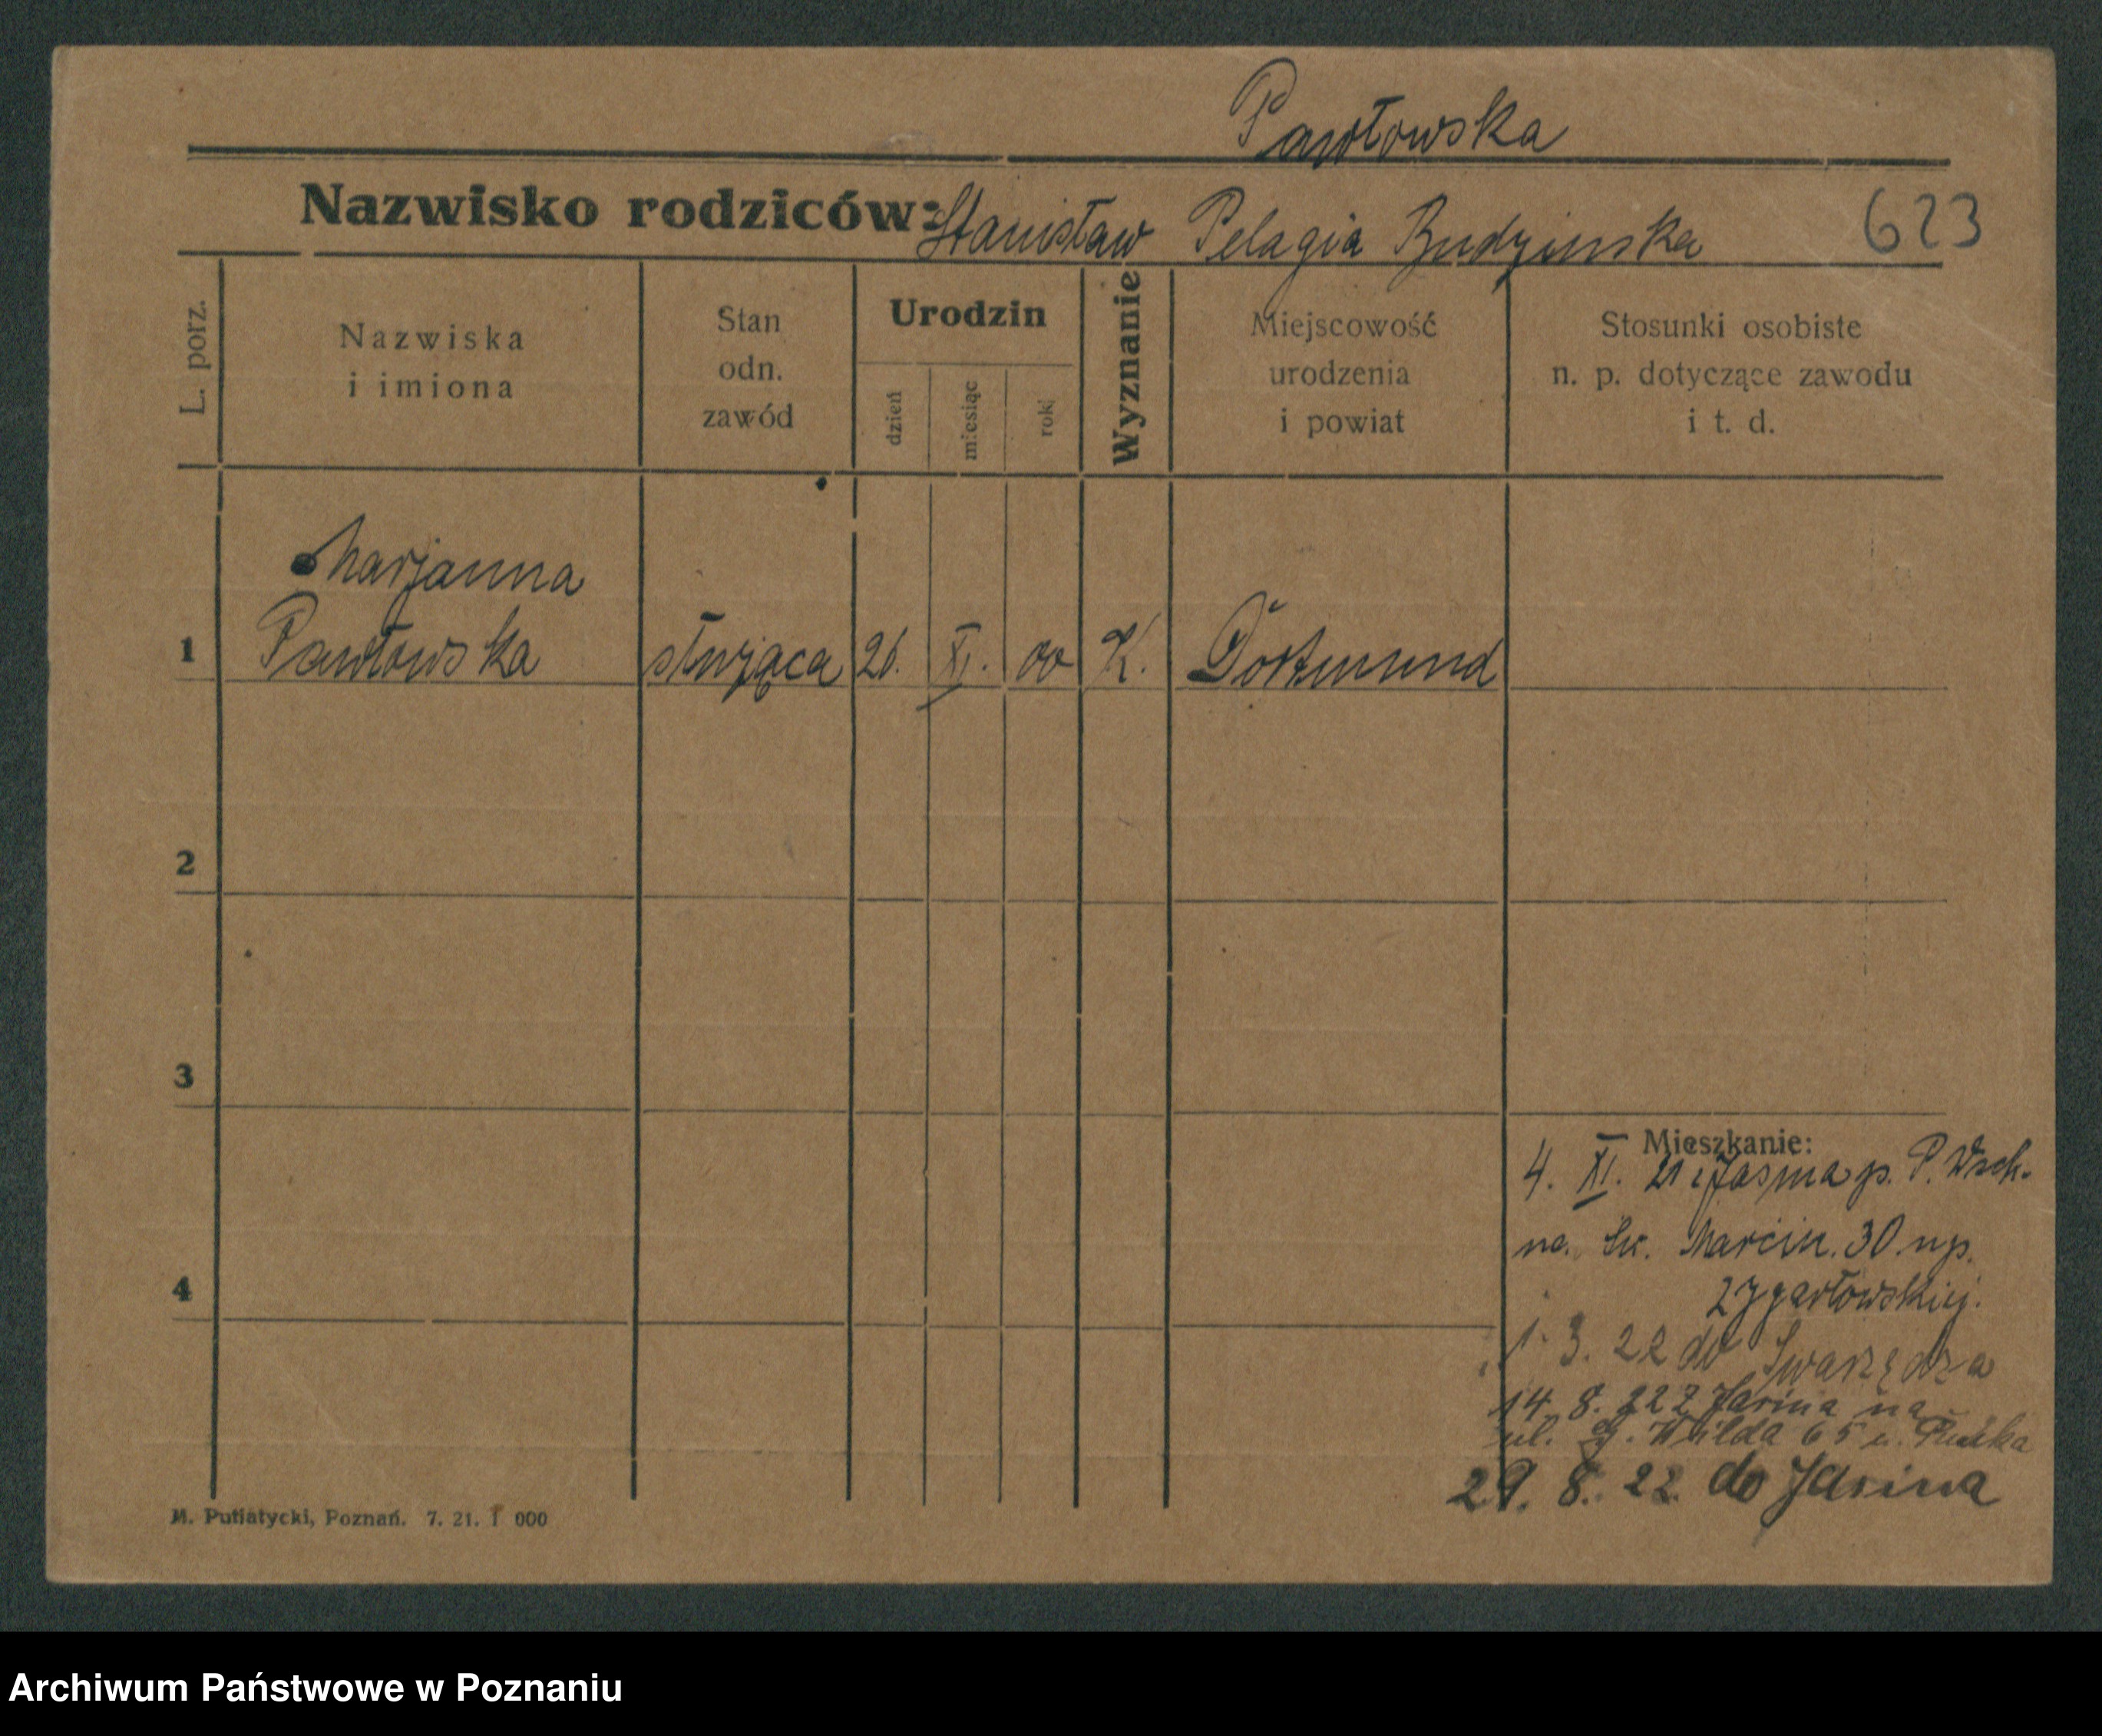 Pawłowska
Nazwisko rodziców: Stanisław Pelagia Budzinska 623
L. porz.
Nazwiska
i imiona
Stan
odn.
zawód
Urodzin
dzień
miesiąc
rok
Wyznanie
Miejscowość
urodzenia
i powiat
Stosunki osobiste
n. p. dotyczące zawodu
i t. d.
Marjanna
1 Pawłowska służąca 26. XI. 00 K. Dortmund
2
3
Mieszkanie:
4. XI. 21 p. P. Wsch.
na Św. Marcin. 30 u p.
4
1. 3. 22 do Swarzędza
14. 8. 22 z Jasina na
ul. G. Wilda 65 u.
29. 8. 22. do Jasina
M. Putiatycki, Poznań. 7. 21. 1 000
Archiwum Państwowe w Poznaniu